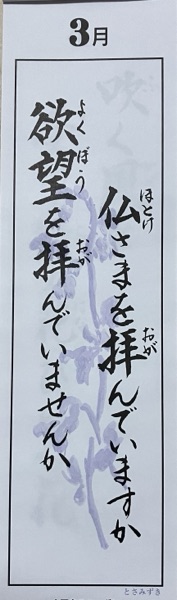 3月
仏さまを拝んでいますか
ほとけ
おが
欲望を拝んでいませんか
よくぼう
おが
とさみずき